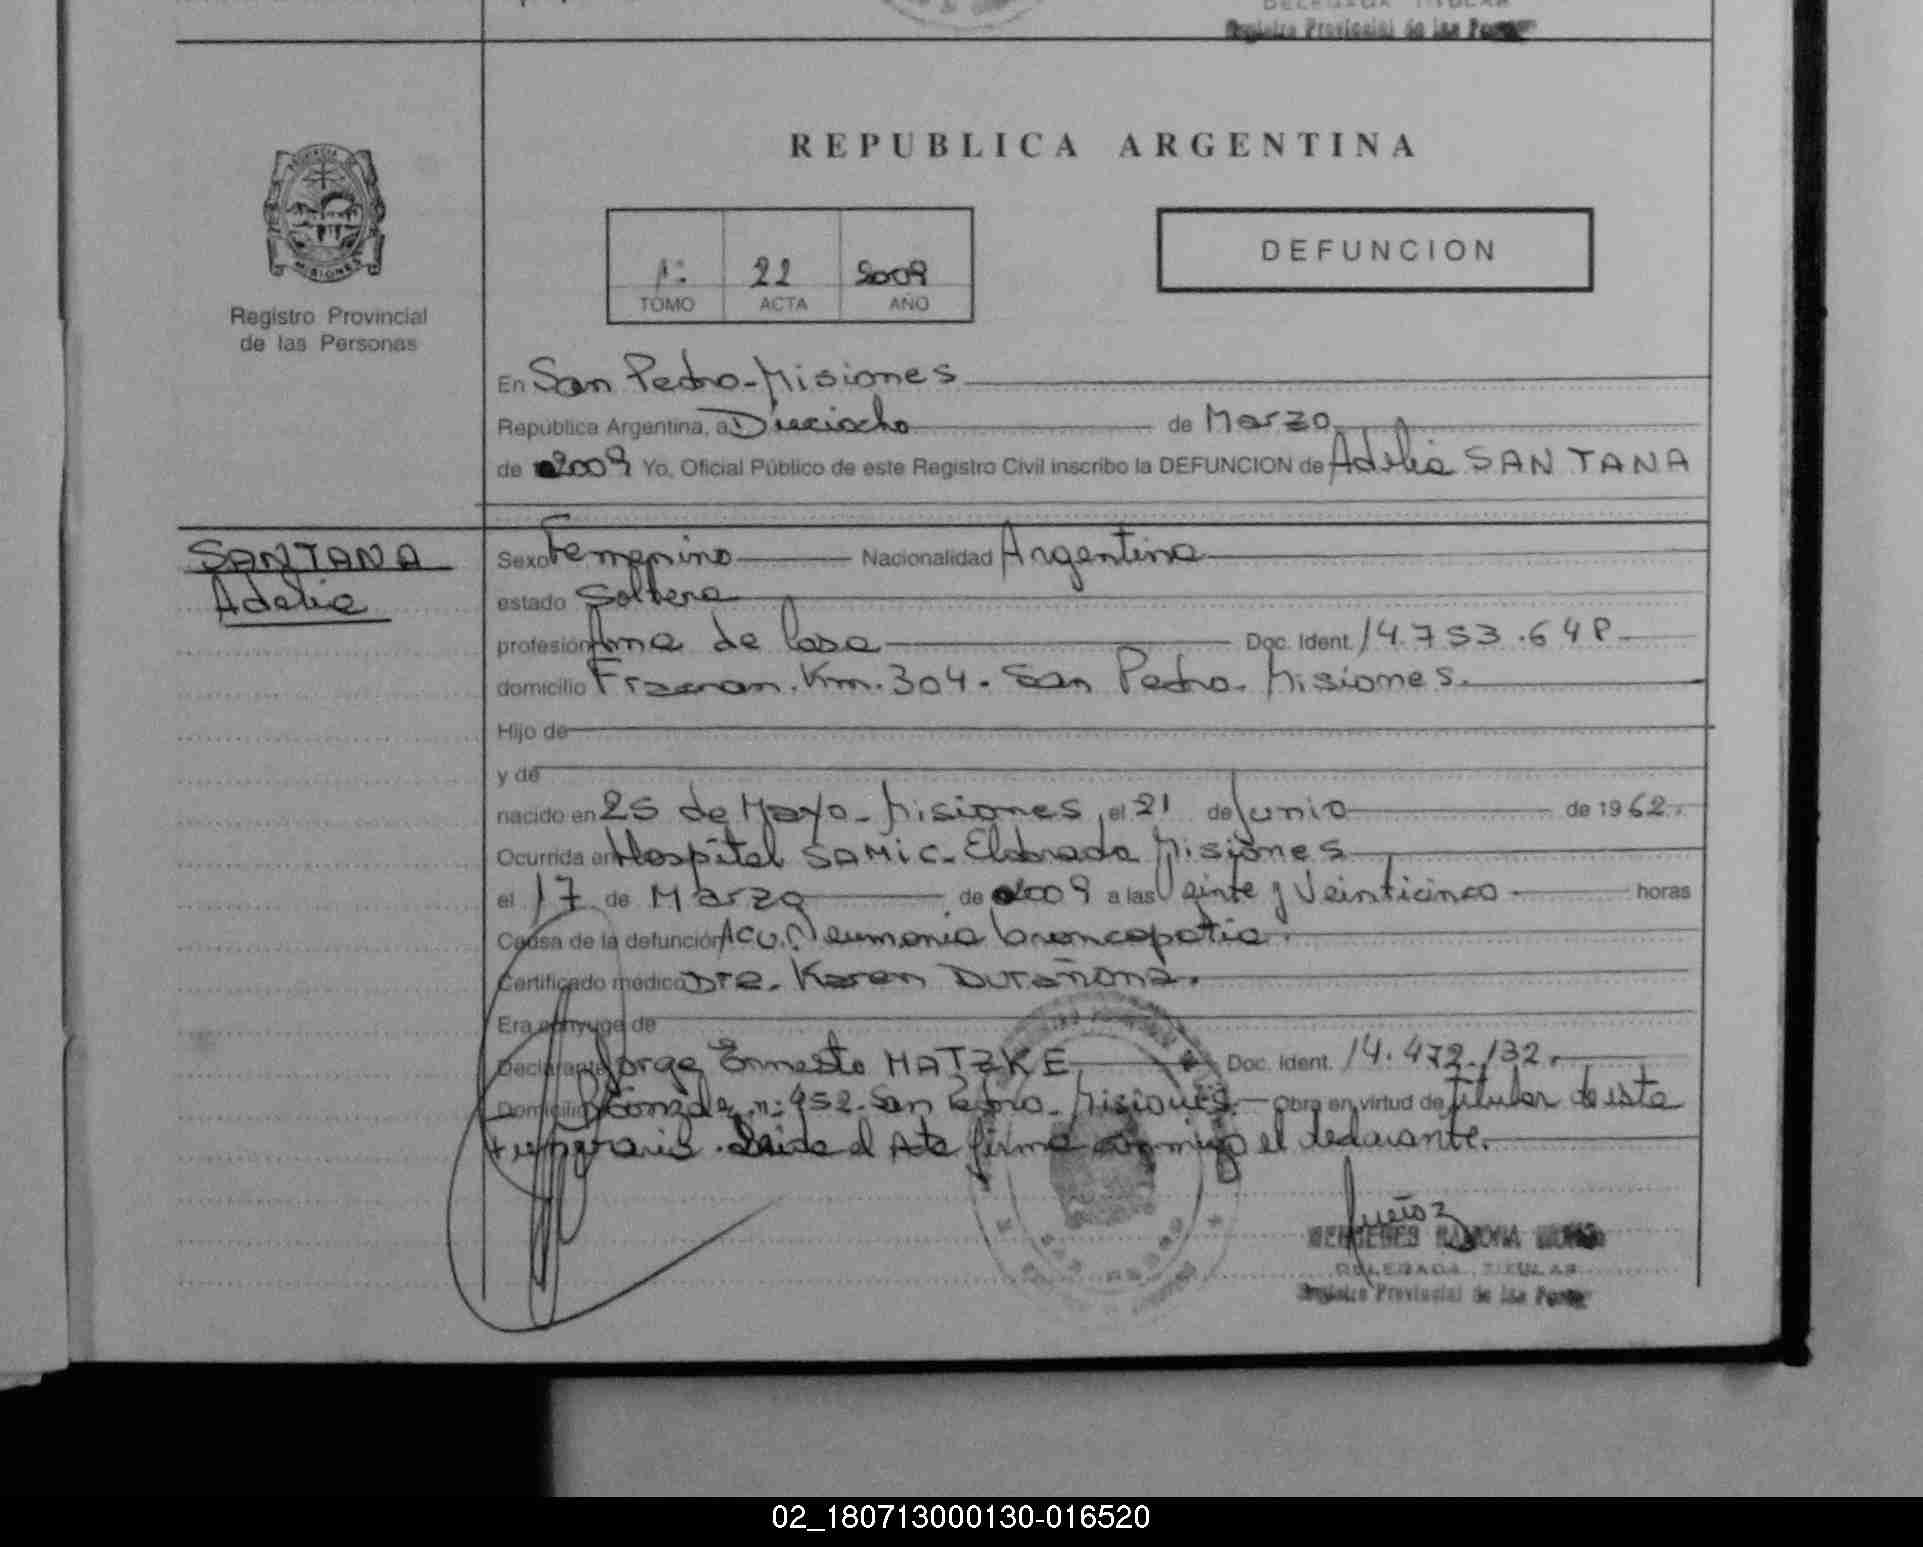 Registro Provincial de las
REPUBLICA ARGENTINA
PROVINCIA DE
MISIONES
Registro Provincial
de las Personas
1: 22 2009
TOMO ACTA AÑO
DEFUNCION
En San Pedro-Misiones
República Argentina, a Dieciocho de Marzo
de 2009 Yo, Oficial Público de este Registro Civil inscribo la DEFUNCION de Adelia SANTANA
SANTANA
Adelia
Sexo Femenino Nacionalidad Argentina
estado Soltera
profesión Ama de Casa Doc. Ident. 14.753.648
domicilio Fracran. Km. 304. San Pedro. Misiones.
Hijo de
y de
nacido en 25 de Mayo-Misiones, el 21 de Junio de 1962.
Ocurrida en Hospital SAMIC-Eldorado Misiones
el 17 de Marzo de 2009 a las Veinte y Veinticinco horas
Causa de la defunción ACV. Neumonia broncopatia.
Certificado médico Dra. Karen Durañona.
Era cónyuge de
Declarante Jorge Ernesto MATZKE Doc. Ident. 14.472.132.
Domicilio n: 952. San Pedro-Misiones. Obra en virtud de titular de esta
el Acta firma conmigo el declarante.
RAMONA
DELEGADA TITULAR
Registro Provincial de las
02_180713000130-016520